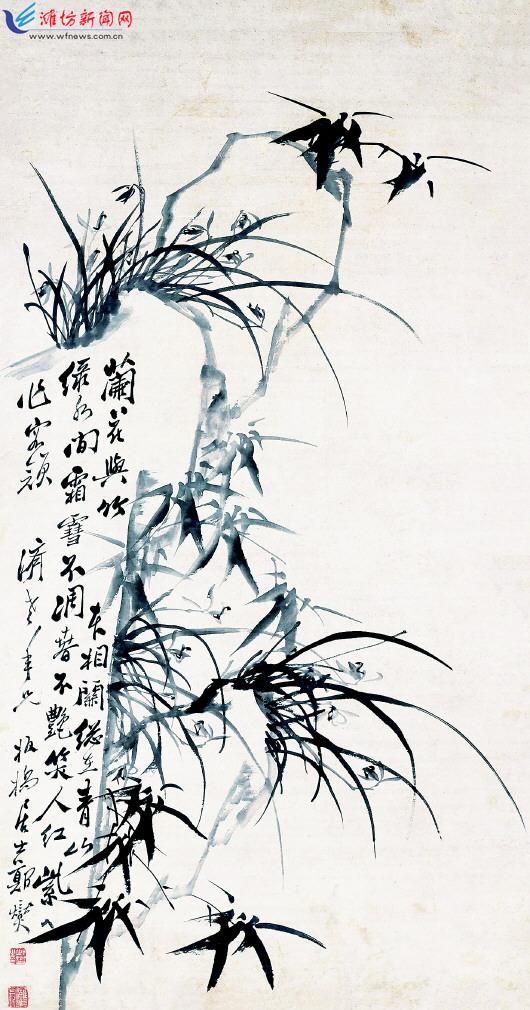 濰坊新闻网
www.wfnews.com.cn
蘭花與竹本相關總在青山
緑水間霜雪不凋春不艷笑人紅紫
作客頑 濟老年兄 板橋居士鄭燮